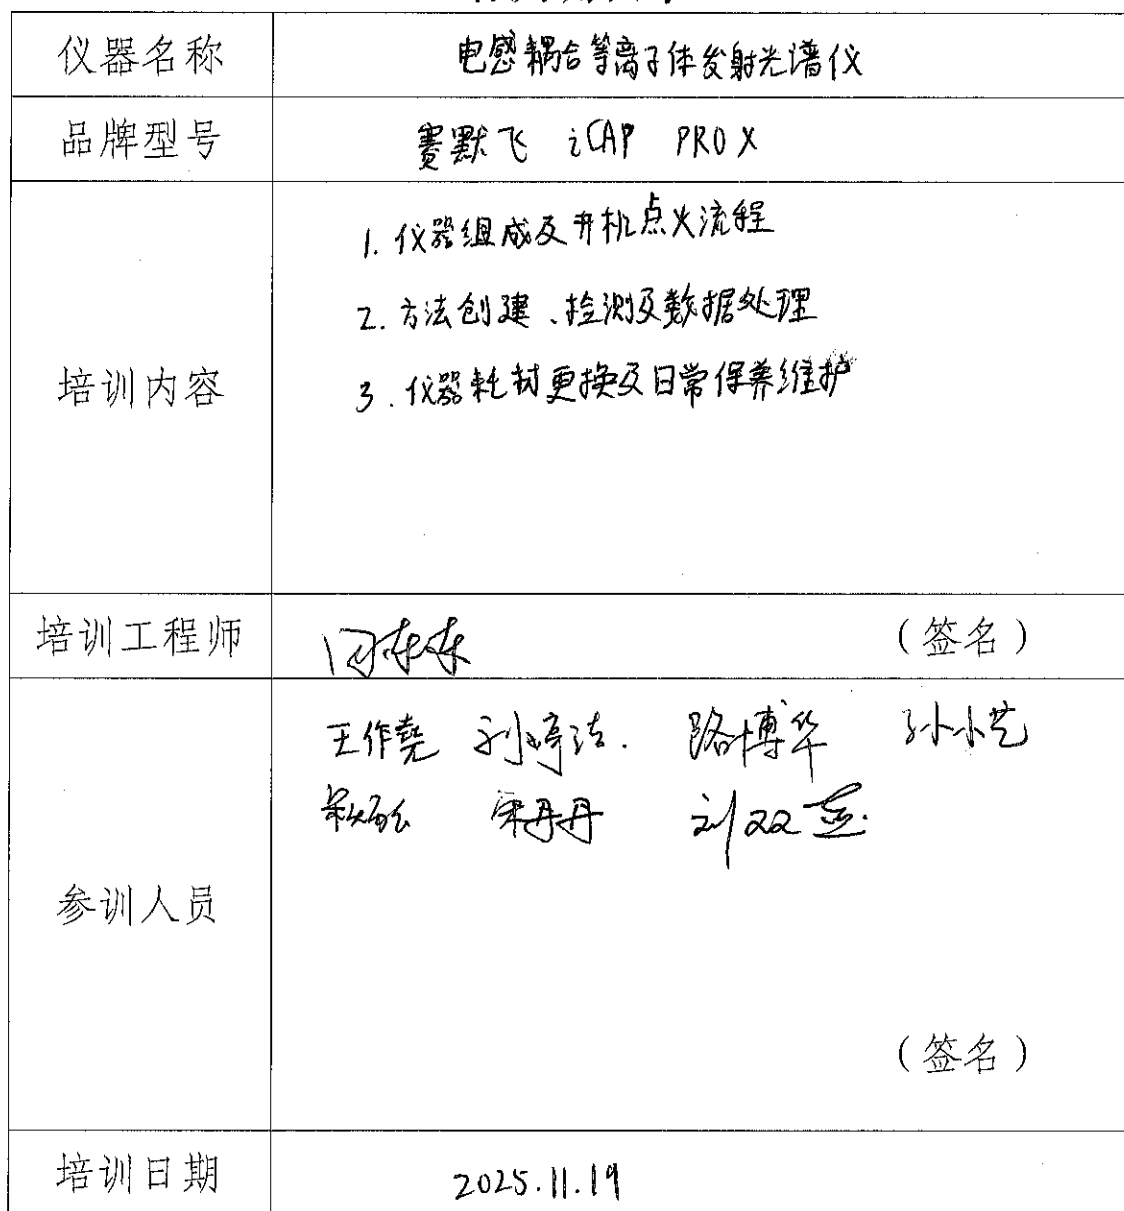 仪器名称 电感耦合等离子体发射光谱仪
品牌型号 赛默飞 iCAP PRO X
1. 仪器组成及开机点火流程
2. 方法创建、检测及数据处理
培训内容
3. 仪器耗材更换及日常保养维护
培训工程师 闫东东 (签名)
王作尧 刘婷洁. 路博华 孙小艺
宋丹丹 刘双燕.
参训人员
(签名)
培训日期 2025.11.19